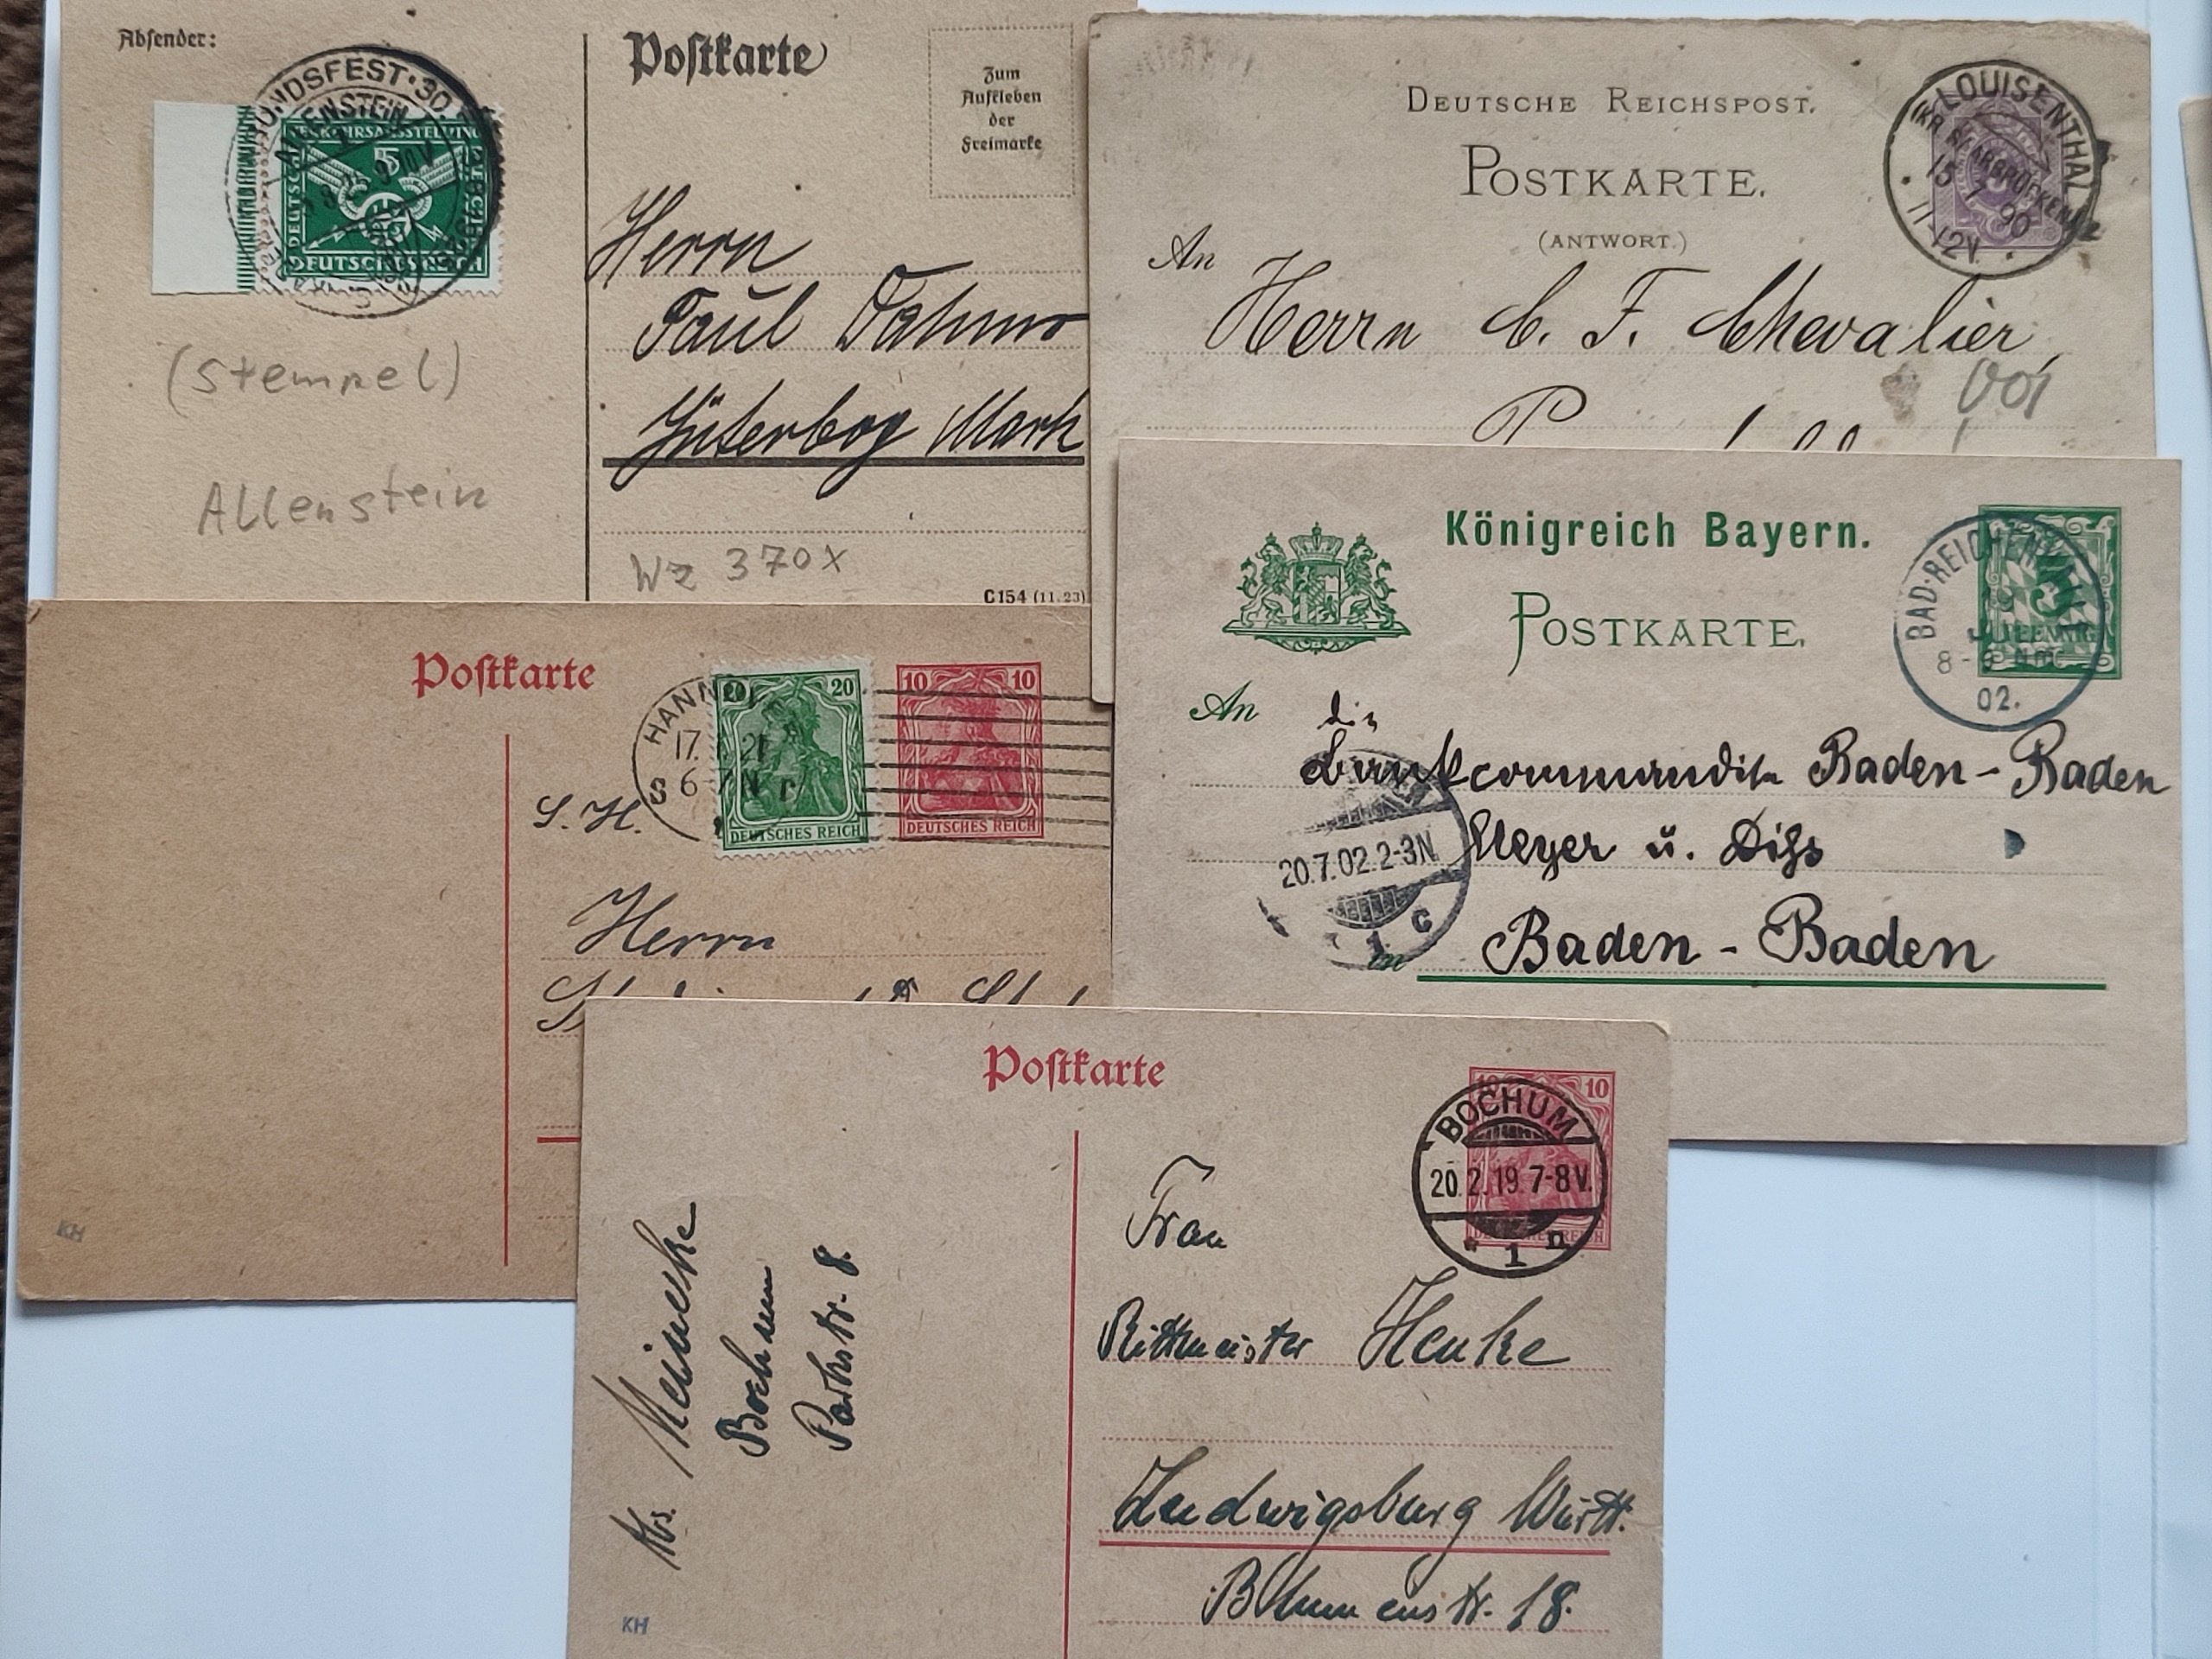 Absender:
Postkarte
Zum
Aufkleben
der
Freimarke
BUNDSFEST · 30.
ALLENSTEIN
VERKEHRSAUSSTELLUNG
5
DEUTSCHES REICH
Herrn
Paul
Jüterbog Mark
(Stempel)
Allenstein
Wz 370X
C154 (11.23)
DEUTSCHE REICHSPOST.
POSTKARTE.
(ANTWORT.)
LOUISENTHAL
(KR. SAARBRÜCKEN)
15 90
11-12V.
An
Herrn C. F. Chevalier,
Königreich Bayern.
POSTKARTE.
BAD-REICHENHALL
19
8-9 Nm
02.
PFENNIG
An
die
Bankcommandite Baden-Baden
Meyer u.
20.7.02.2-3N.
1 c
in
Baden-Baden
Postkarte
HANNOVER
17. 21
6-7N
S
20 20
DEUTSCHES REICH
10 10
DEUTSCHES REICH
S.H.
Herrn
KH
Postkarte
10 10
BOCHUM
20.2.19.7-8V.
* 1 n
DEUTSCHES REICH
Frau
Rittmeister Henke
Ludwigsburg Württ.
Blumenstr. 18.
Meinecke
Bochum
Parkstr. 8.
KH